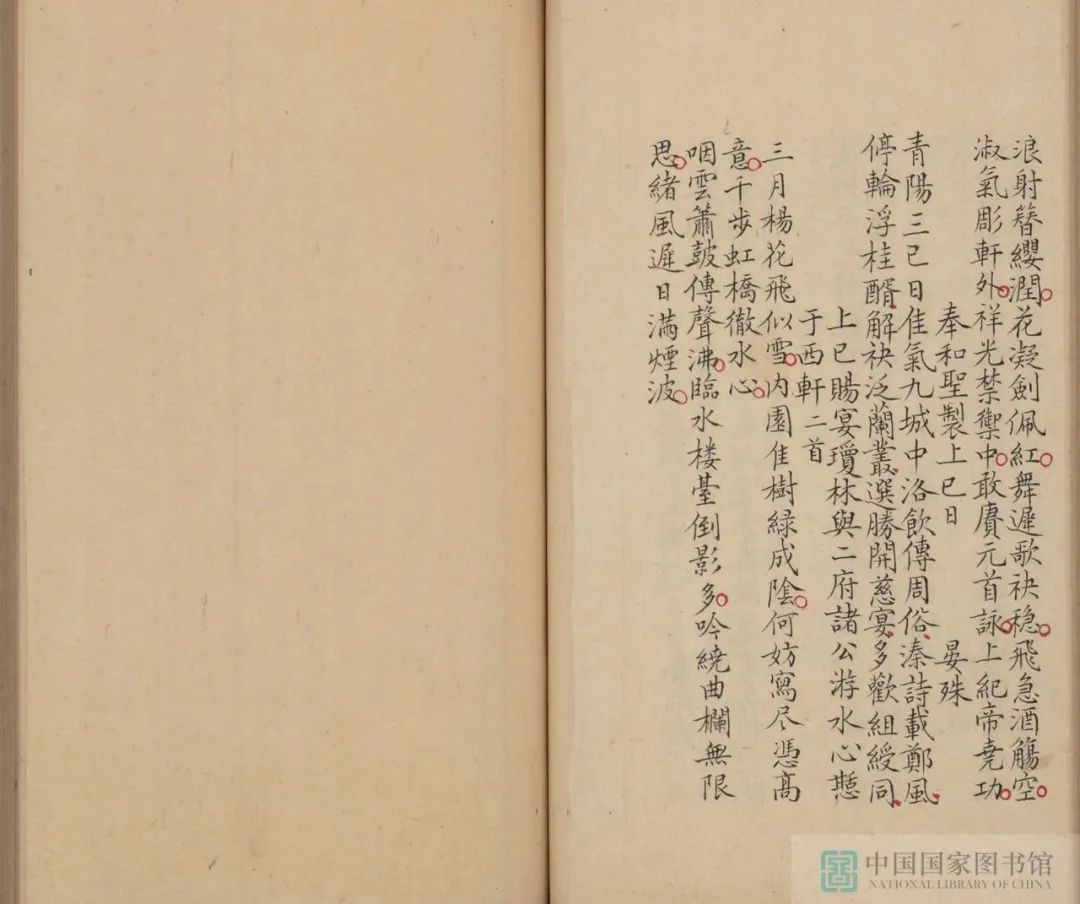 浪射簪纓潤花凝劍佩紅舞遲歌袂穩飛急酒觴空
淑氣彫軒外祥光禁籞中敢賡元首詠上紀帝堯功
奉和聖製上巳日 晏殊
青陽三巳日佳氣九城中洛飲傳周俗溱詩載鄭風
停輪浮桂醑解袂泛蘭叢選勝開慈宴多歡組綬同
上巳賜宴瓊林與二府諸公游水心憇
于西軒二首
三月楊花飛似雪内園佳樹緑成陰何妨寫尽憑高
意千步虹橋徹水心
咽雲簫鼓傳聲沸臨水楼臺倒影多吟繞曲欄無限
思緒風遲日满煙波
中国国家图书馆
NATIONAL LIBRARY OF CHINA